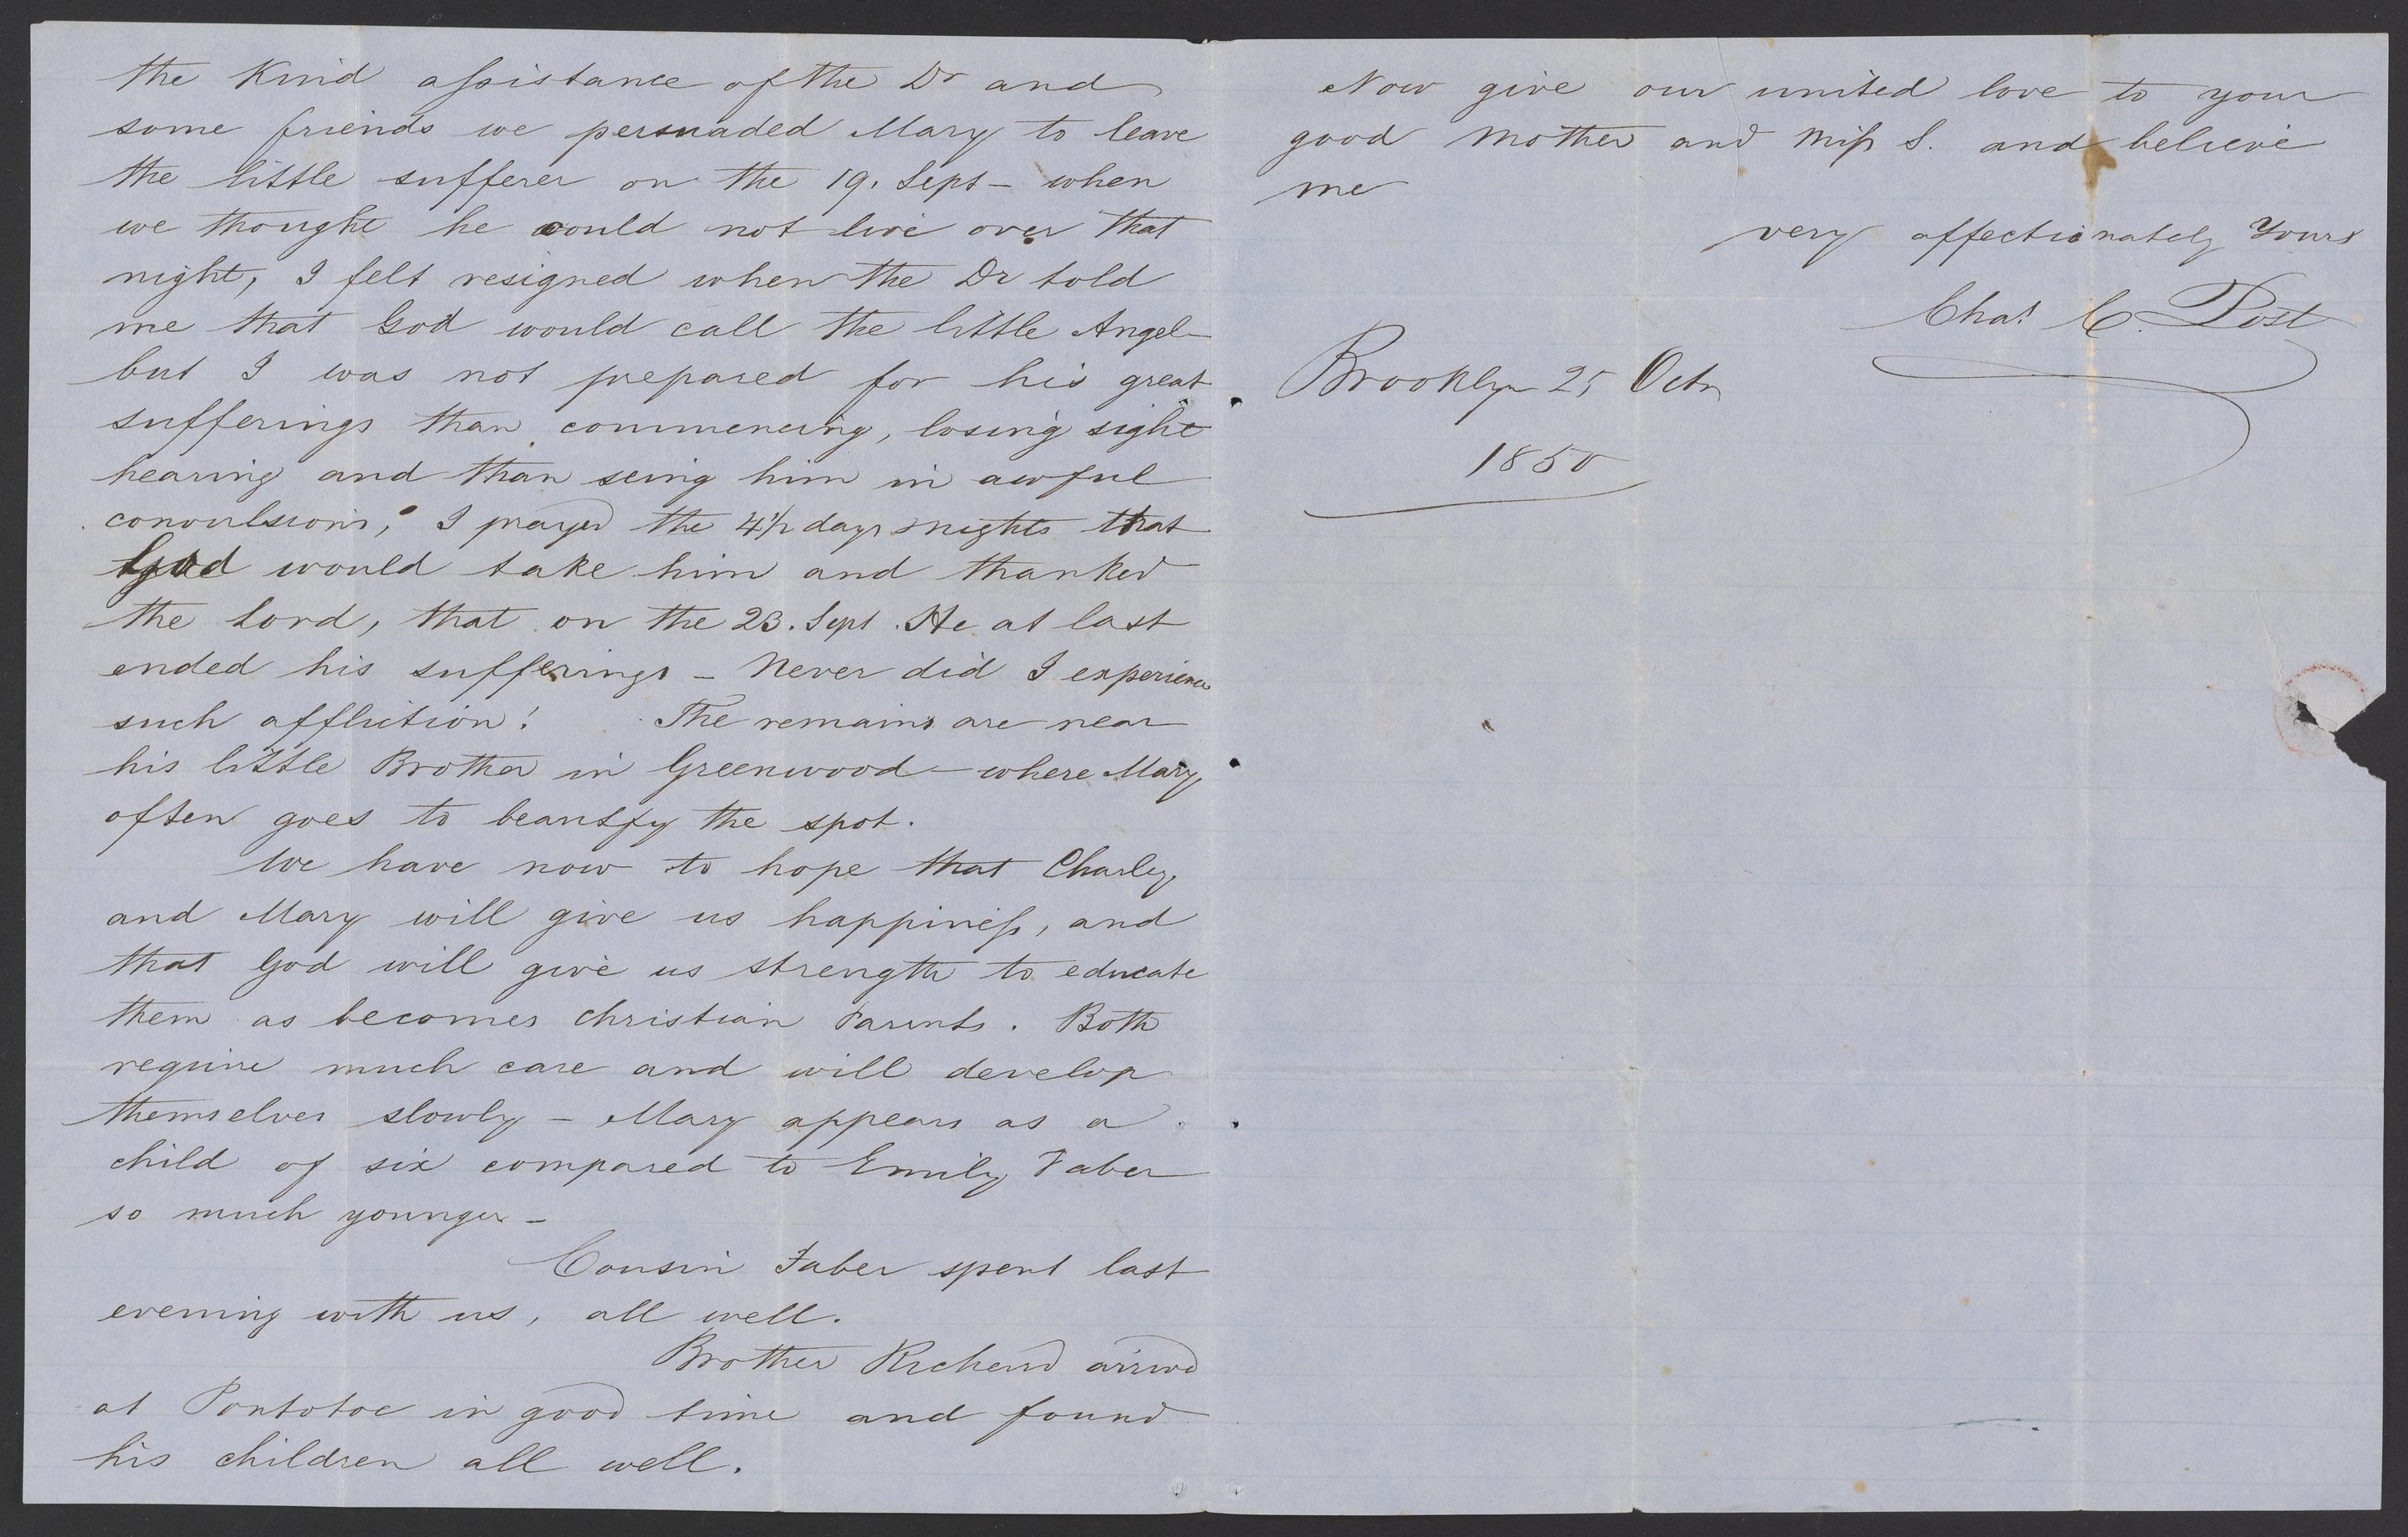 the Kind assistance of the Dr and
some friends we persuaded Mary to leave
the little sufferer on the 19. Sept - when
we thought he could not live over that
night, I felt resigned when the Dr told
me that God would call the little Angel
but I was not prepared for his great
sufferings than commencing, losing sight
hearing and than seing him in awful
convulsions, I prayed the 4 1/2 days nights that
God would take him and thanked
the Lord, that on the 23. Sept. He at last
ended his sufferings - Never did I experience
such affliction! The remains are near
his little Brother in Greenwood - where Mary
often goes to beautify the spot.
We have now to hope that Charley
and Mary will give us happiness, and
that God will give us strength to educate
them as becomes christian Parents. Both
require much care and will develop
themselves slowly - Mary appears as a
child of six compared to Emily Faber
so much younger -
Cousin Faber spent last
evening with us, all well.
Brother Richard arrived
at Pontotoc in good time and found
his children all well.
Now give our united love to your
good Mother and Miss S. and believe
me
very affectionately Yours
Chas C. Post
Brooklyn 25 Octr
1850